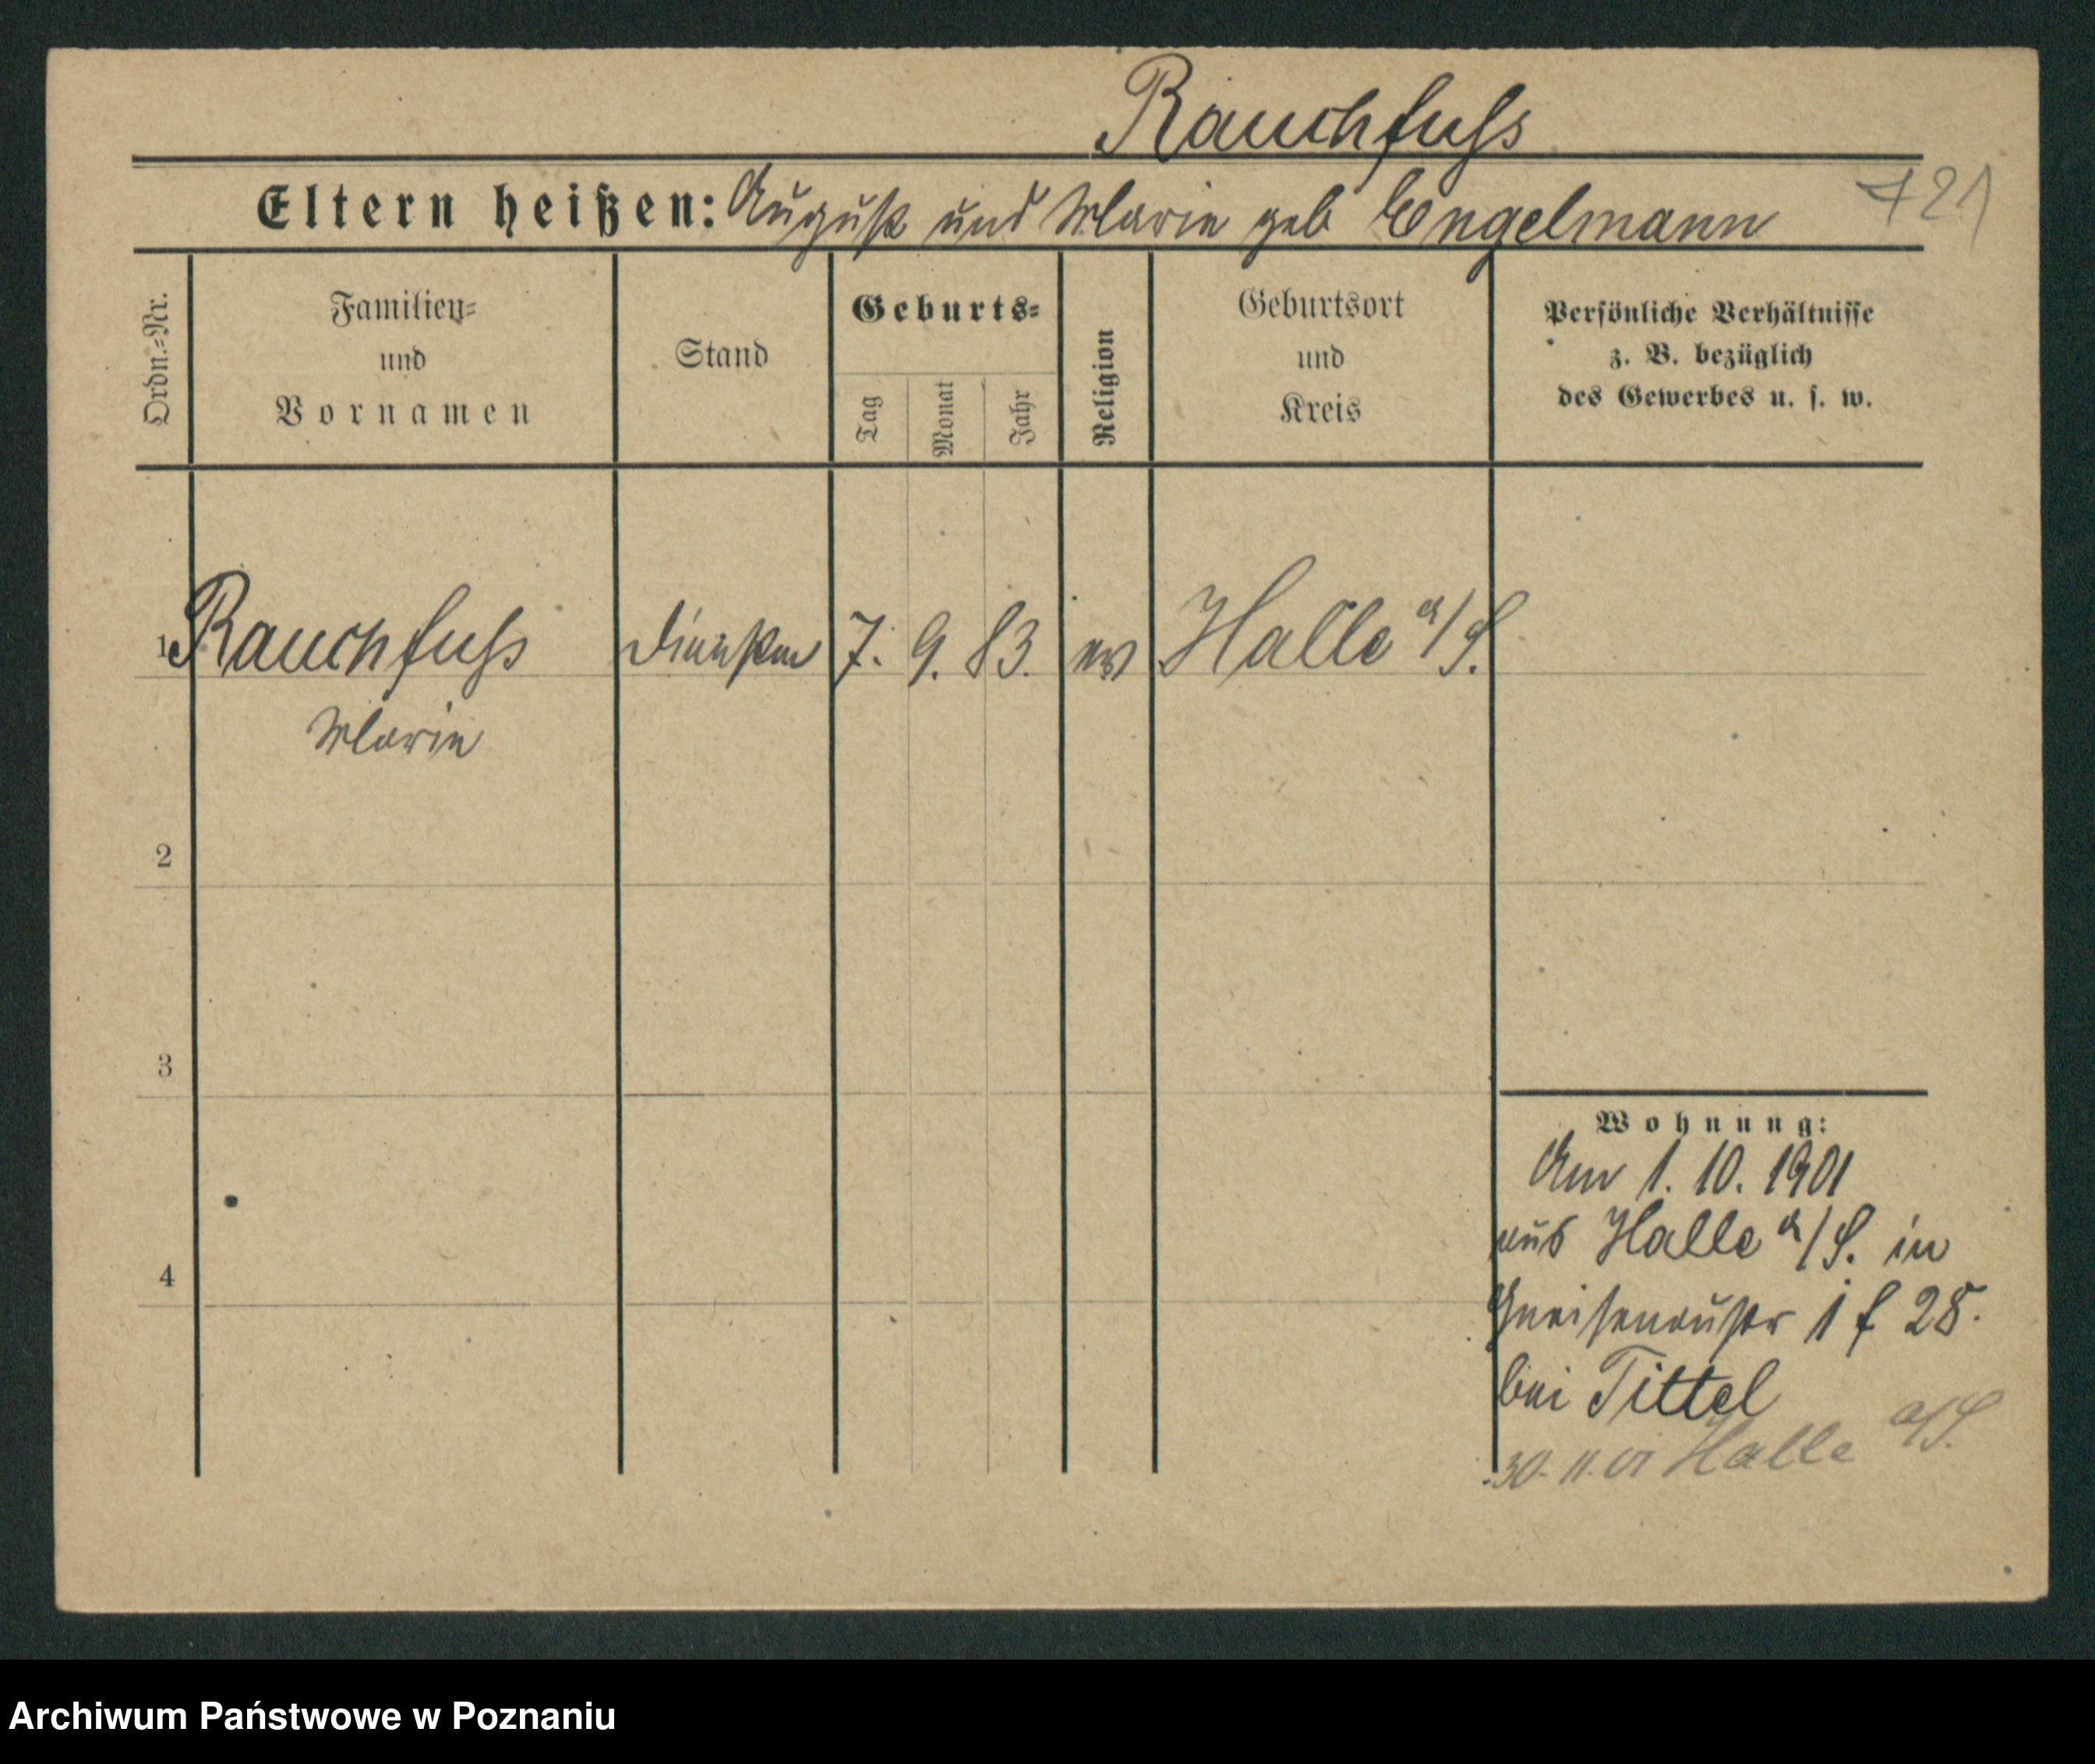 Rauchfuss
Eltern heißen: August und Marie geb Engelmann
421
Ordn.=Nr.
Familien=
und
Vornamen
Stand
Geburts=
Tag
Monat
Jahr
Religion
Geburtsort
und
Kreis
Persönliche Verhältnisse
z. B. bezüglich
des Gewerbes u. s. w.
1 Rauchfuss 7. 9. 83. ev Halle a/S.
Marie
2
3
4
Wohnung:
Am 1. 10. 1901
aus Halle a/S. in
Gneisenaustr 28.
bei Tittel
30. 11. 01 Halle a/S.
Archiwum Państwowe w Poznaniu